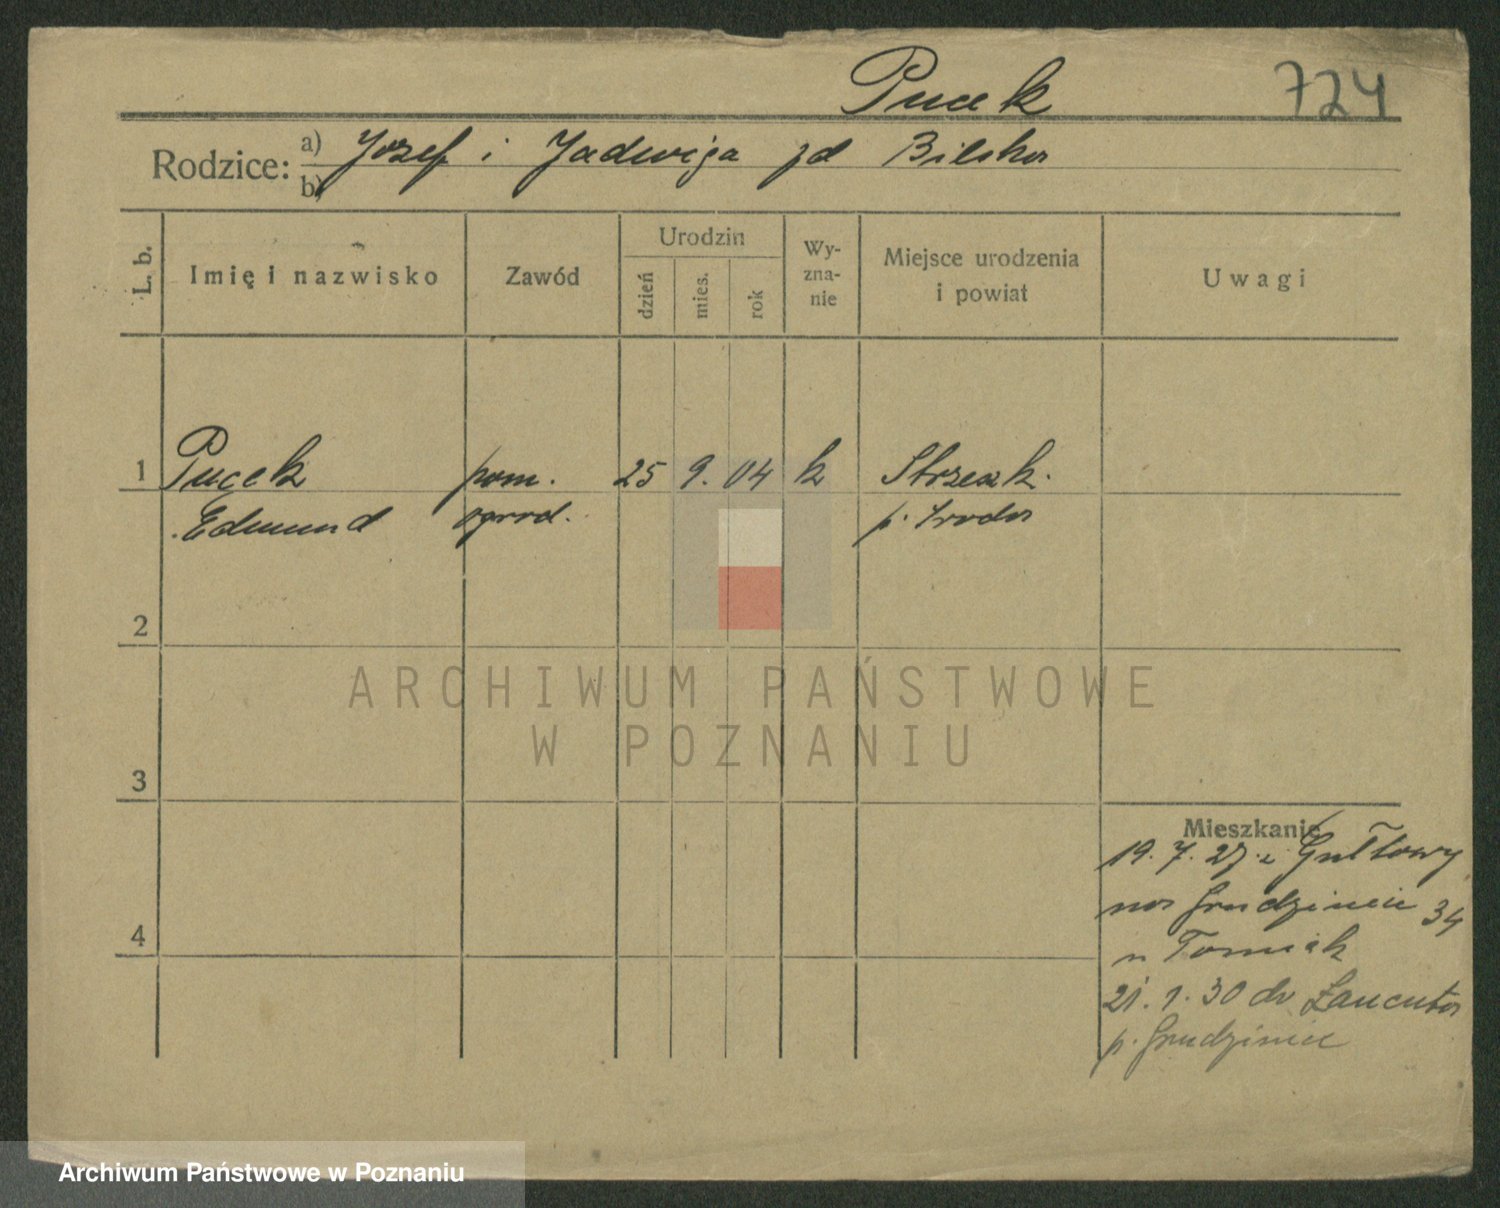 Pucek 724
Rodzice: a) Józef i Jadwiga zd Bilska
b)
L. b. Imię i nazwisko Zawód Urodzin dzień mies. rok Wy-zna-nie Miejsce urodzenia i powiat Uwagi
1 Pucek pom. 25 9. 04 k Strzeszk.
Edmund ogrod. p. Środa
2
ARCHIWUM PAŃSTWOWE
W POZNANIU
3
Mieszkanie
19. 7. 27. z Gułtowy
na Grudzieniec 34
u Tomiak
4
21. 1. 30 do
p. Grudzieniec
Archiwum Państwowe w Poznaniu